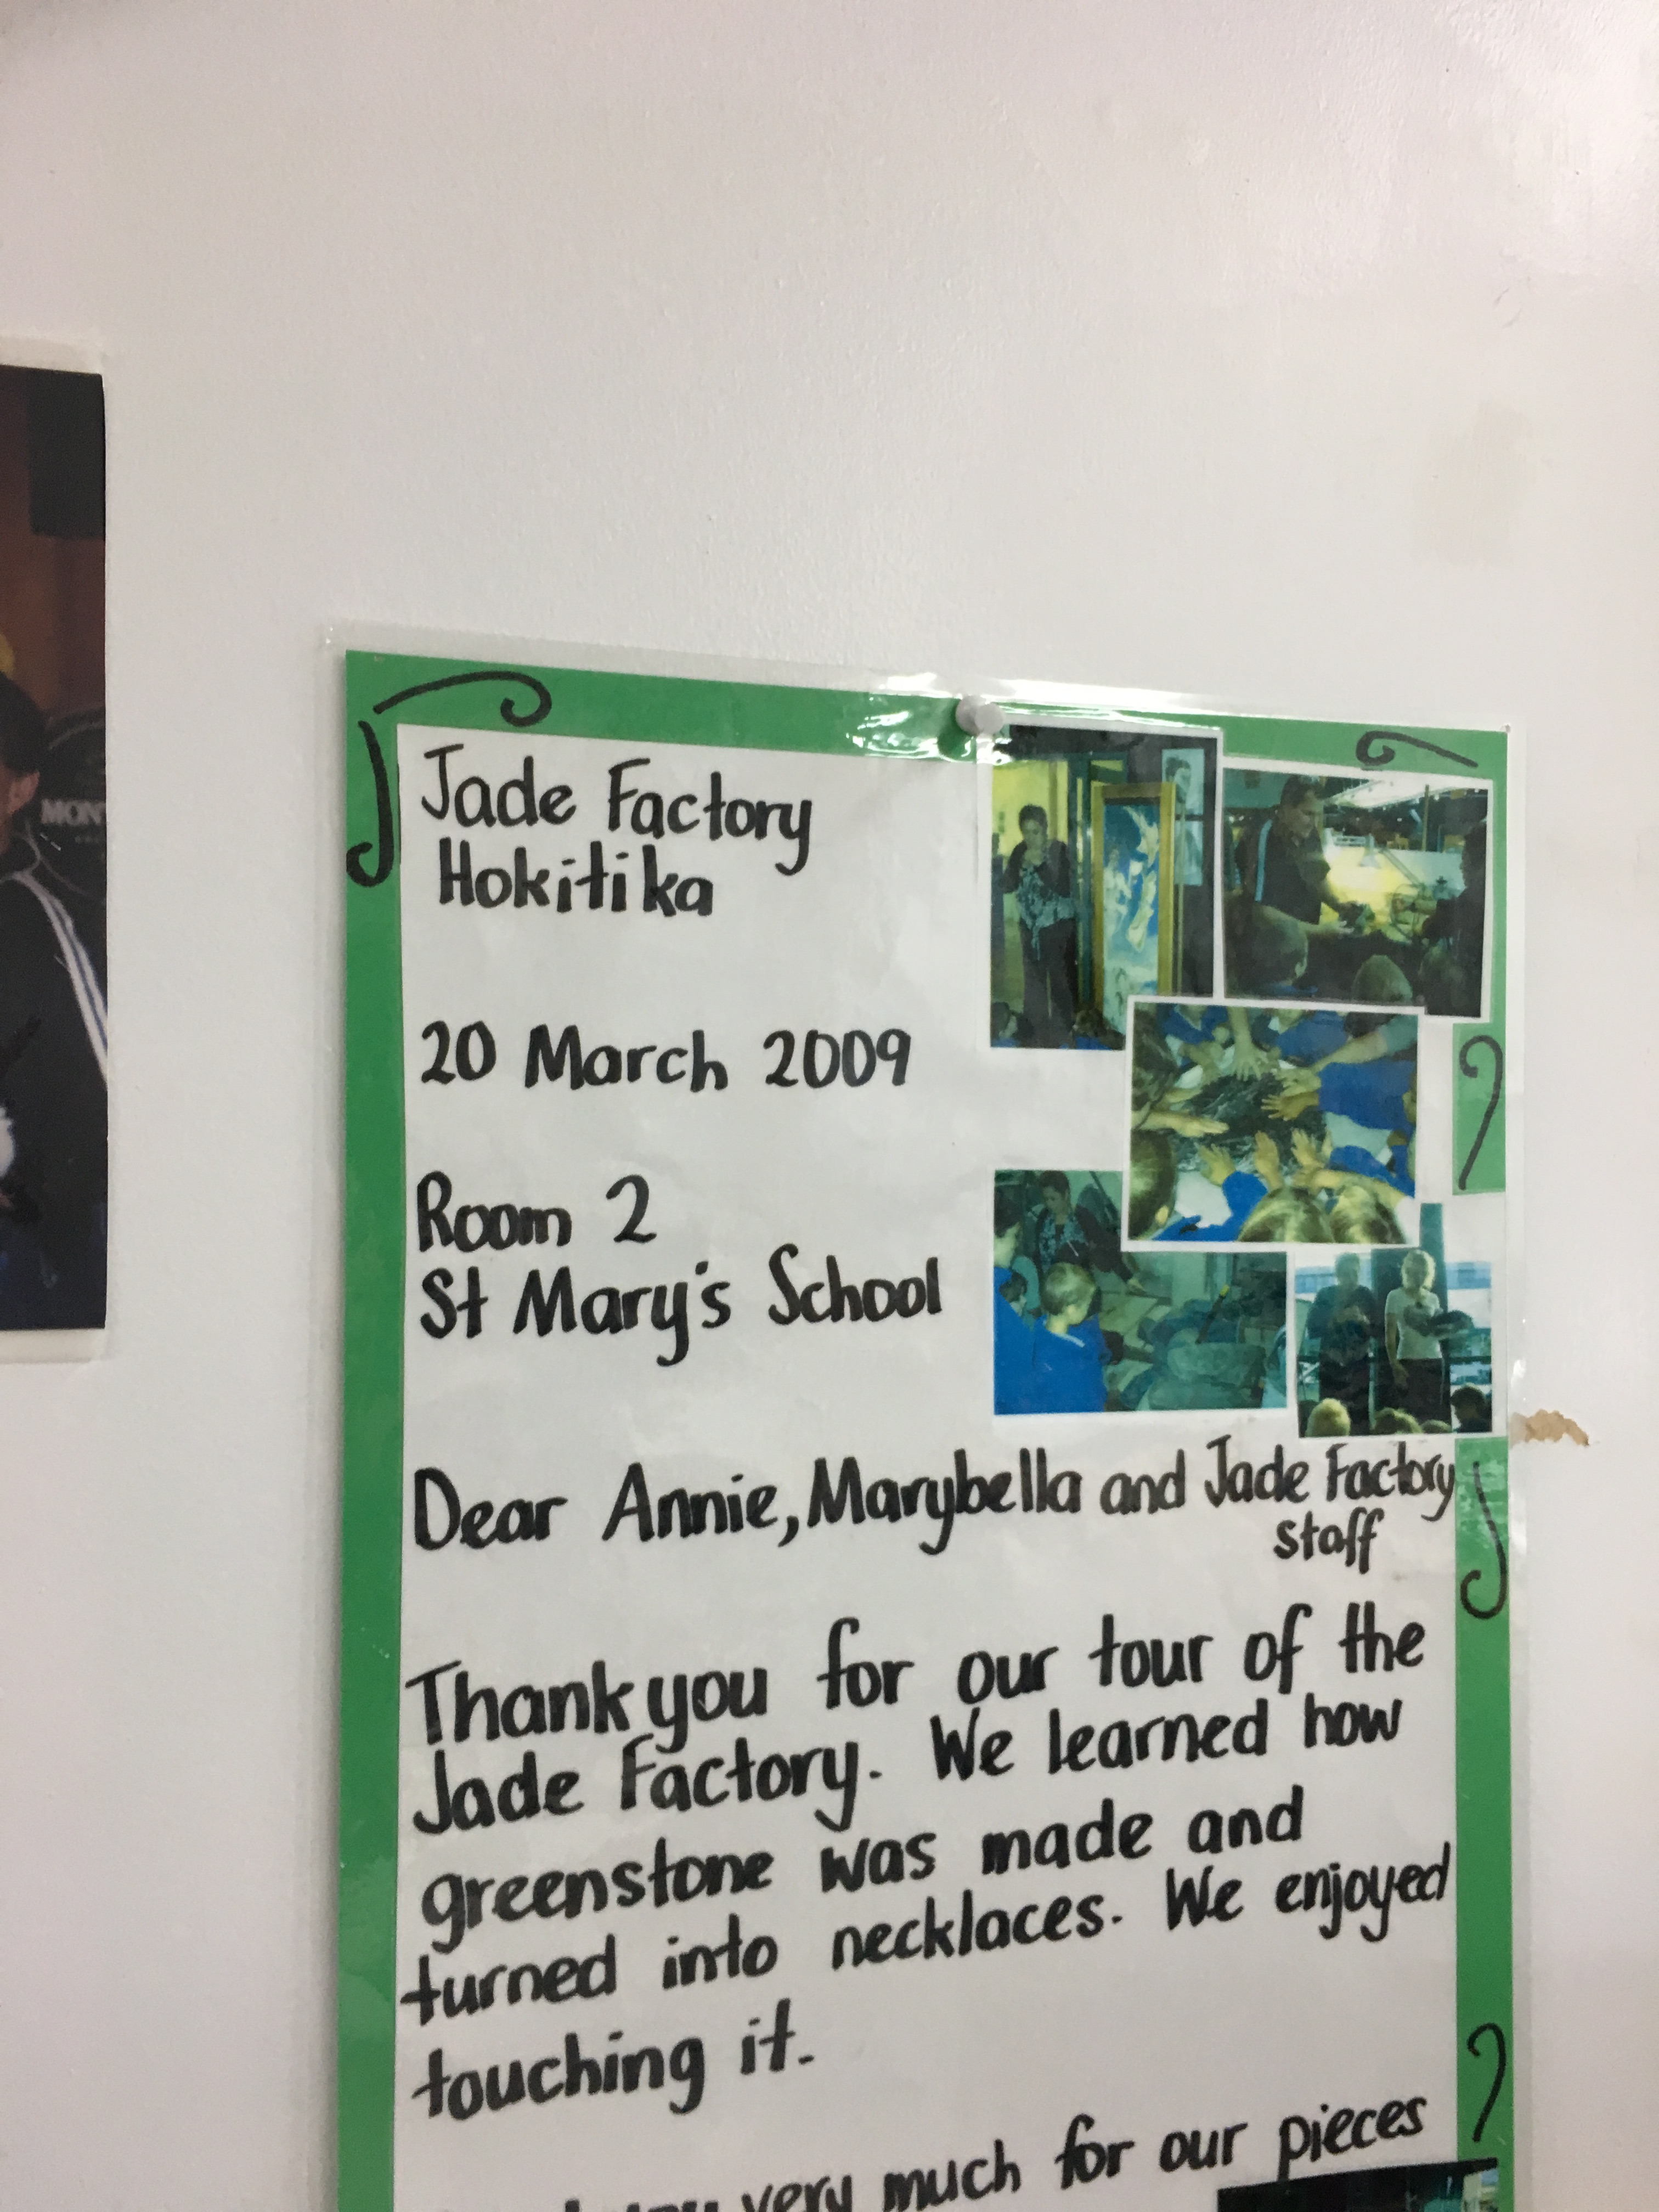 Jade Factory
Hokitika
20 March 2009
Room 2
St Mary's School
Dear Annie, Marybella and Jade Factory
staff
Thank you for our tour of the
Jade Factory. We learned how
greenstone was made and
turned into necklaces. We enjoyed
touching it.
very much for our pieces